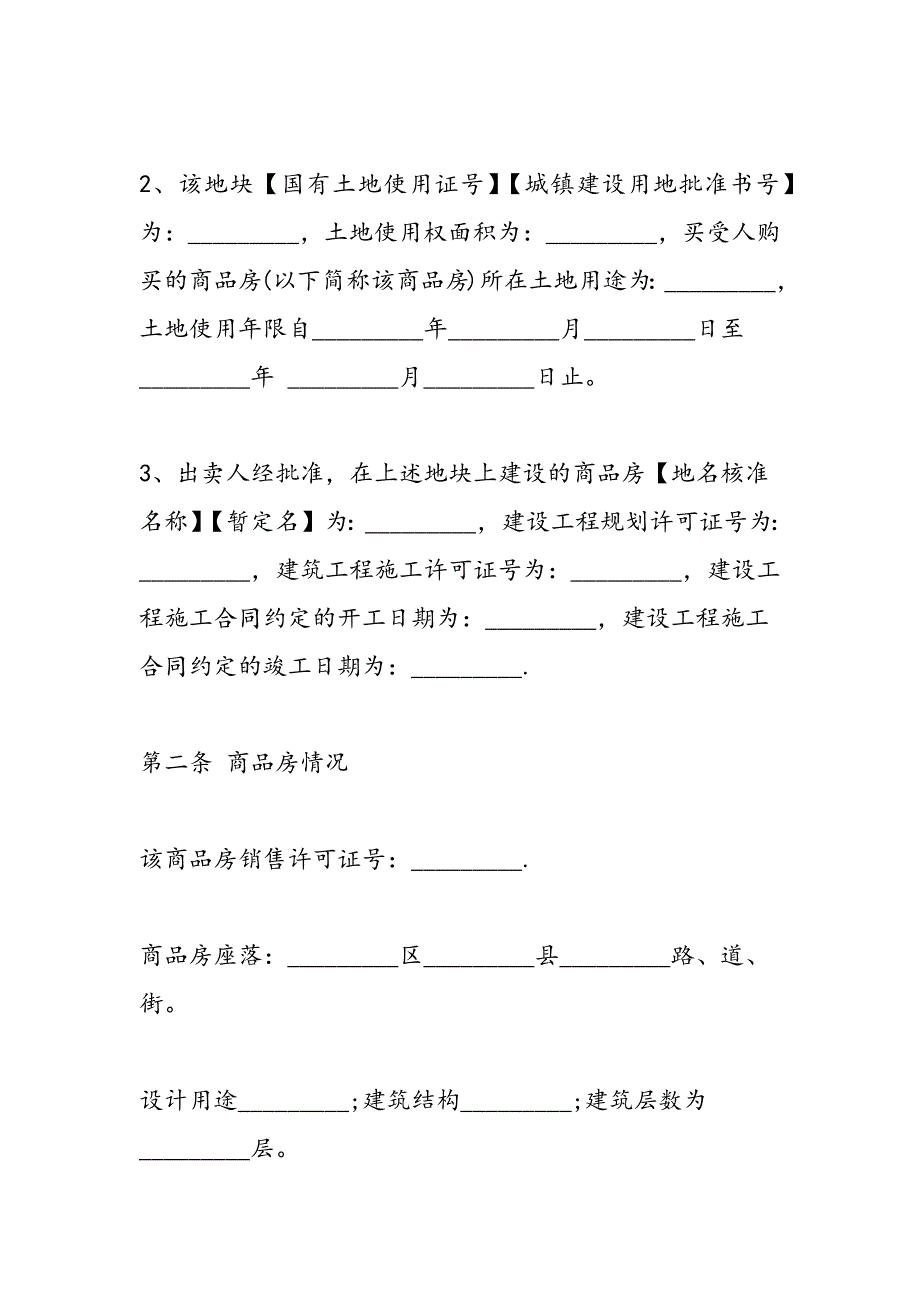 2、该地块【国有土地使用证号】【城镇建设用地批准书号】
为：_________，土地使用权面积为：_________，买受人购
买的商品房(以下简称该商品房)所在土地用途为：_________，
土地使用年限自_________年_________月_________日至
_________年 _________月_________日止。
3、出卖人经批准，在上述地块上建设的商品房【地名核准
名称】【暂定名】为：_________，建设工程规划许可证号为：
_________，建筑工程施工许可证号为：_________，建设工
程施工合同约定的开工日期为：_________，建设工程施工
合同约定的竣工日期为：_________.
第二条 商品房情况
该商品房销售许可证号：_________.
商品房座落：_________区_________县_________路、道、
街。
设计用途_________;建筑结构_________;建筑层数为
_________层。